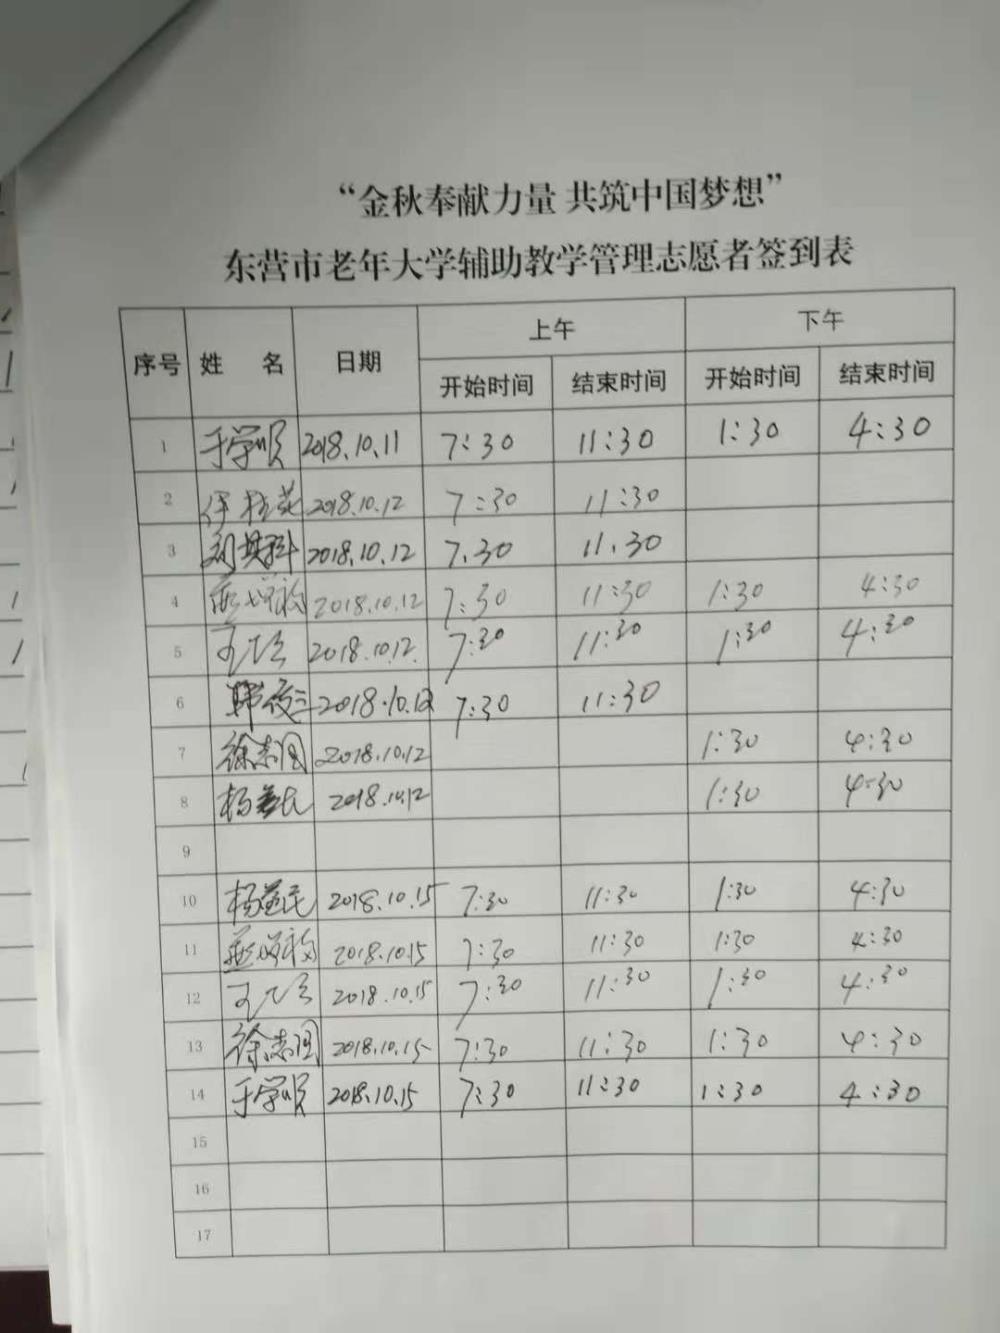 “金秋奉献力量 共筑中国梦想”
东营市老年大学辅助教学管理志愿者签到表
序号 姓 名 日期 上午 下午
开始时间 结束时间 开始时间 结束时间
1 于学顺 2018.10.11 7:30 11:30 1:30 4:30
2 2018.10.12 7:30 11:30
3 2018.10.12 7.30 11.30
4 2018.10.12 7:30 11:30 1:30 4:30
5 2018.10.12. 7:30 11:30 1:30 4:30
6 2018.10.12 7:30 11:30
7 徐志国 2018.10.12 1:30 4:30
8 杨益民 2018.10.12 1:30 4:30
9
10 杨益民 2018.10.15 7:30 11:30 1:30 4:30
11 2018.10.15 7:30 11:30 1:30 4:30
12 2018.10.15 7:30 11:30 1:30 4:30
13 徐志国 2018.10.15 7:30 11:30 1:30 4:30
14 于学顺 2018.10.15 7:30 11:30 1:30 4:30
15
16
17